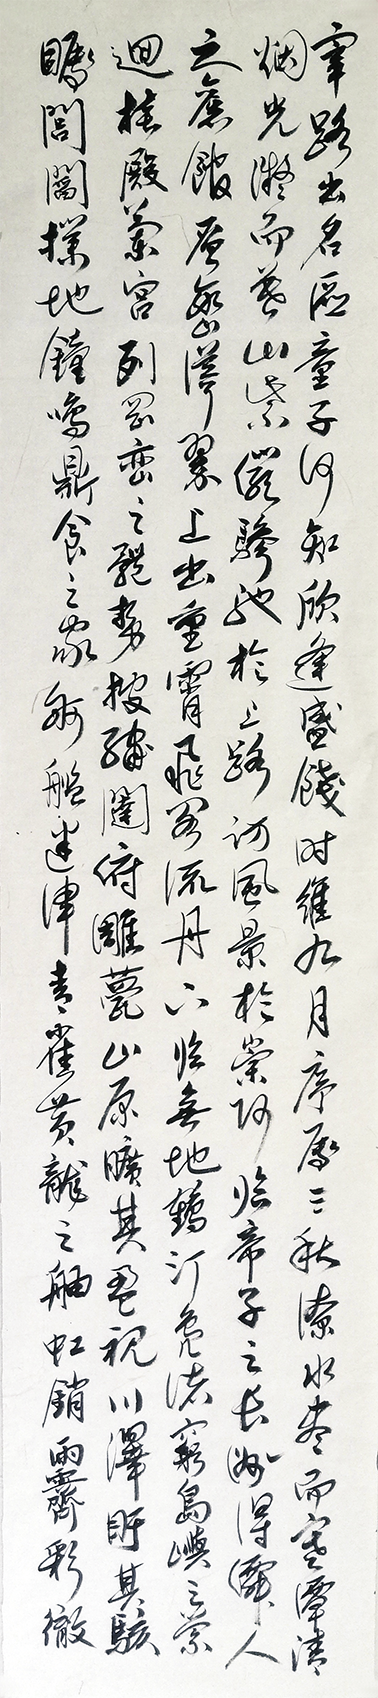 宰路出名區童子何知欣逢盛餞時維九月序屬三秋潦水盡而寒潭清
烟光凝而暮山紫儼驂騑於上路訪風景於崇阿臨帝子之長洲得僊人
之舊館層巒聳翠上出重霄飛閣流丹下臨無地鶴汀鳧渚窮島嶼之縈
迴桂殿蘭宮列岡巒之體勢披繡闥俯雕甍山原曠其盈視川澤盱其駭
矚閭閻撲地鐘鳴鼎食之家舸艦迷津青雀黃龍之舳虹銷雨霽彩徹